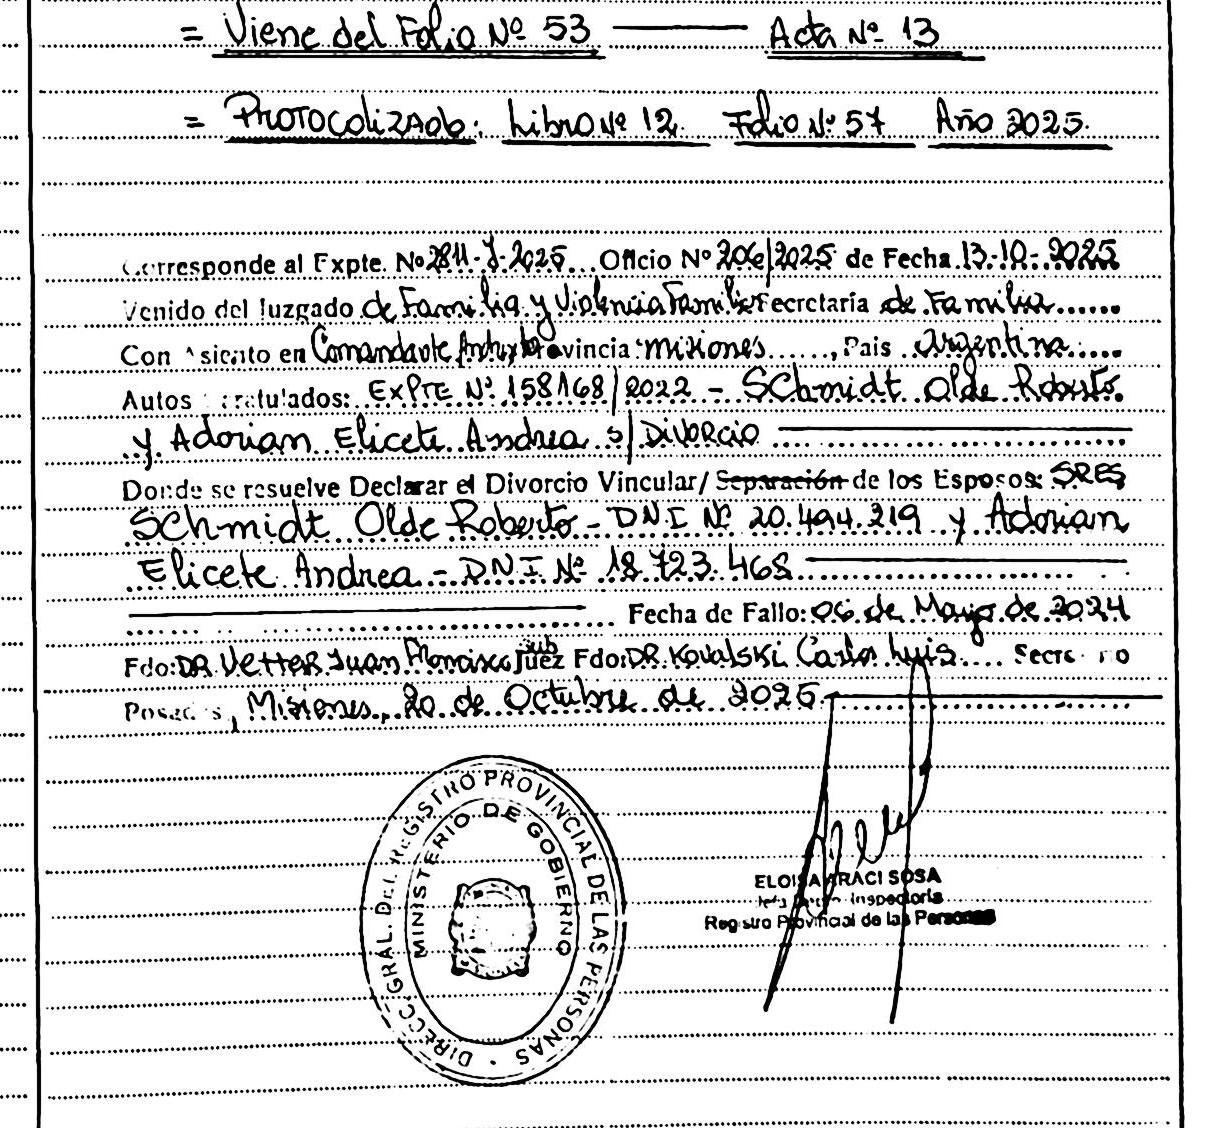 = Viene del Folio Nº 53 Acta Nº 13
= PROTOCOLIZADO: Libro Nº 12 Folio Nº 57 Año 2025.
Corresponde al Expte. Nº 2811-J-2025 Oficio Nº 206/2025 de Fecha 13-10-2025
Venido del Juzgado de Familia y Violencia Familiar Secretaría de Familia
Con Asiento en Comandante Provincia: misiones, Pais Argentina
Autos: EXPTE Nº 158168/2022 - SChmidt Olde Roberto
y Adorian Elicete Andrea s/ DIVORCIO
Donde se resuelve Declarar el Divorcio Vincular/ Separación de los Esposos: SRES
SChmidt Olde Roberto - DNI Nº 20.494.219 y Adorian
Elicete Andrea - DNI Nº 18.723.468
Fecha de Fallo: 06 de Mayo de 2024
Fdo: DR VETTER Juan Francisco sub Juez Fdo: DR. Kovalski Carlos Luis
Posadas, Misiones, 20 de Octubre de 2025
DIRECC. GRAL. DEL REGISTRO PROVINCIAL DE LAS PERSONAS
MINISTERIO DE GOBIERNO
ELOISA ARACI SOSA
Inspectoria
Registro Provincial de las Personas